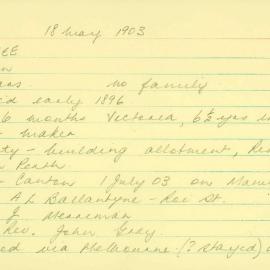 18 May 1903
EE
n
no family
d early 1896
6 months Victoria, 6½ yrs in
- maker
ty - building allotment,
Perth
- Canton 1 July 03 on
A L Ballantyne - Roe St.
J
Rev. John Gray
ed via Melbourne (? stayed)